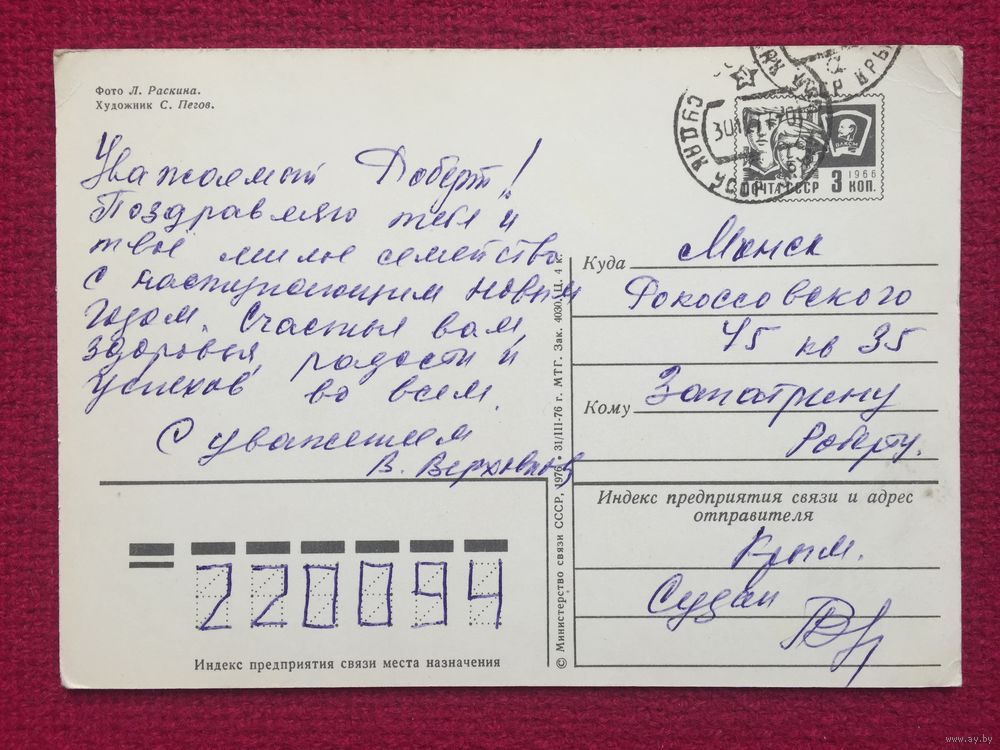 Фото Л. Раскина.
Художник С. Пегов.
Уважаемый Роберт!
Поздравляю тебя и
твое милое семейство
с наступающим новым
годом. Счастья вам,
здоровья, радости и
успехов во всем.
С уважением
В.
ПОЧТА СССР 3 КОП.
1966
ВЛКСМ
СУДАК УССР
Куда Минск
Рокоссовского
45 кв 35
Кому Запатрину
Роберту.
Индекс предприятия связи и адрес
отправителя
Крым.
Судак
220094
Индекс предприятия связи места назначения
© Министерство связи СССР, 1976 • 31/III-76 г. МТГ. Зак. 4030. Ц. 4 к.
www.ay.by